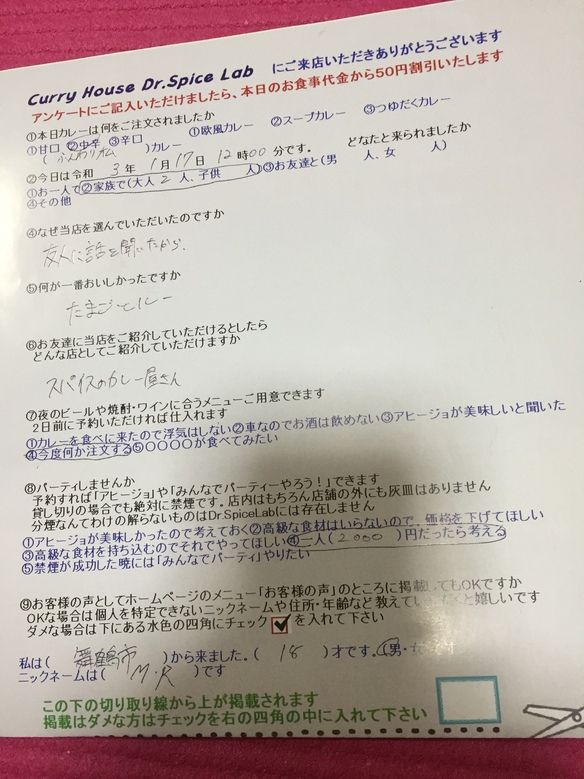 Curry House Dr.Spice Lab にご来店いただきありがとうございます
アンケートにご記入いただけましたら、本日のお食事代金から50円割引いたします
①本日カレーは何をご注文されましたか
①甘口、②中辛 ③辛口 ①欧風カレー ②スープカレー ③つゆだくカレー
(ふんわりオム )カレー
②今日は令和 3 年 1 月 17 日 12 時00 分です。 どなたと来られましたか
①お一人で②家族で(大人 2 人、子供 人)③お友達と(男 人、女 人)
④その他
④なぜ当店を選んでいただいたのですか
友人に話を聞いたから.
⑤何が一番おいしかったですか
たまごとルー
⑥お友達に当店をご紹介していただけるとしたら
どんな店としてご紹介していただけますか
スパイスのカレー屋さん
⑦夜のビールや焼酎・ワインに合うメニューご用意できます
2日前に予約いただければ仕入れます
①カレーを食べに来たので浮気はしない②車なのでお酒は飲めない③アヒージョが美味しいと聞いた
④今度何か注文する⑤〇〇〇〇が食べてみたい
⑧パーティしませんか
予約すれば「アヒージョ」や「みんなでパーティーやろう!」できます
貸し切りの場合でも絶対に禁煙です。店内はもちろん店舗の外にも灰皿はありません
分煙なんてわけの解らないものはDr.SpiceLabには存在しません
①アヒージョが美味しかったので考えておく②高級な食材はいらないので、価格を下げてほしい
③高級な食材を持ち込むのでそれでやってほしい④一人(2000 )円だったら考える
⑤禁煙が成功した暁には「みんなでパーティ」やりたい
⑨お客様の声としてホームページのメニュー「お客様の声」のところに掲載してもOKですか
OKな場合は個人を特定できないニックネームや住所・年齢など教えていただくと嬉しいです
ダメな場合は下にある水色の四角にチェック を入れて下さい
私は( 舞鶴市 )から来ました。( 18 )才です。(男・女
ニックネームは( M.R )です
この下の切り取り線から上が掲載されます
掲載はダメな方はチェックを右の四角の中に入れて下さい